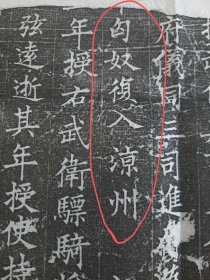 府儀同三司進
匈奴復入涼州
年授右武衛驃騎
弦遠逝其年授使持